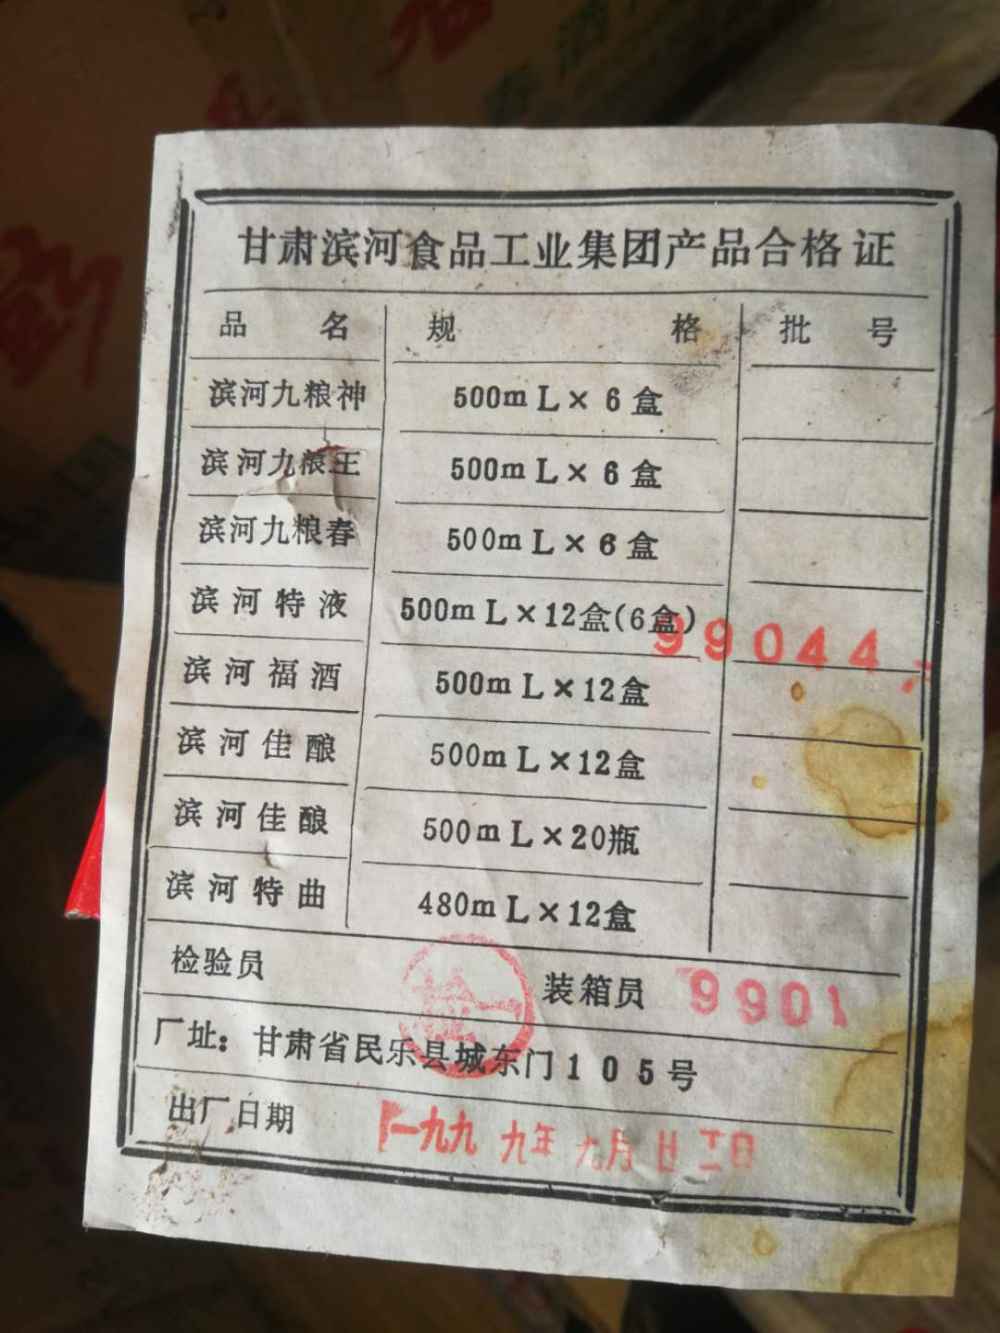 甘肃滨河食品工业集团产品合格证
品 名 规 格 批 号
滨河九粮神 500mL×6盒
滨河九粮王 500mL×6盒
滨河九粮春 500mL×6盒
滨河特液 500mL×12盒(6盒)
99044
滨河福酒 500mL×12盒
滨河佳酿 500mL×12盒
滨河佳酿 500mL×20瓶
滨河特曲 480mL×12盒
检验员 装箱员 9901
厂址：甘肃省民乐县城东门105号
出厂日期 一九九九年九月廿三日